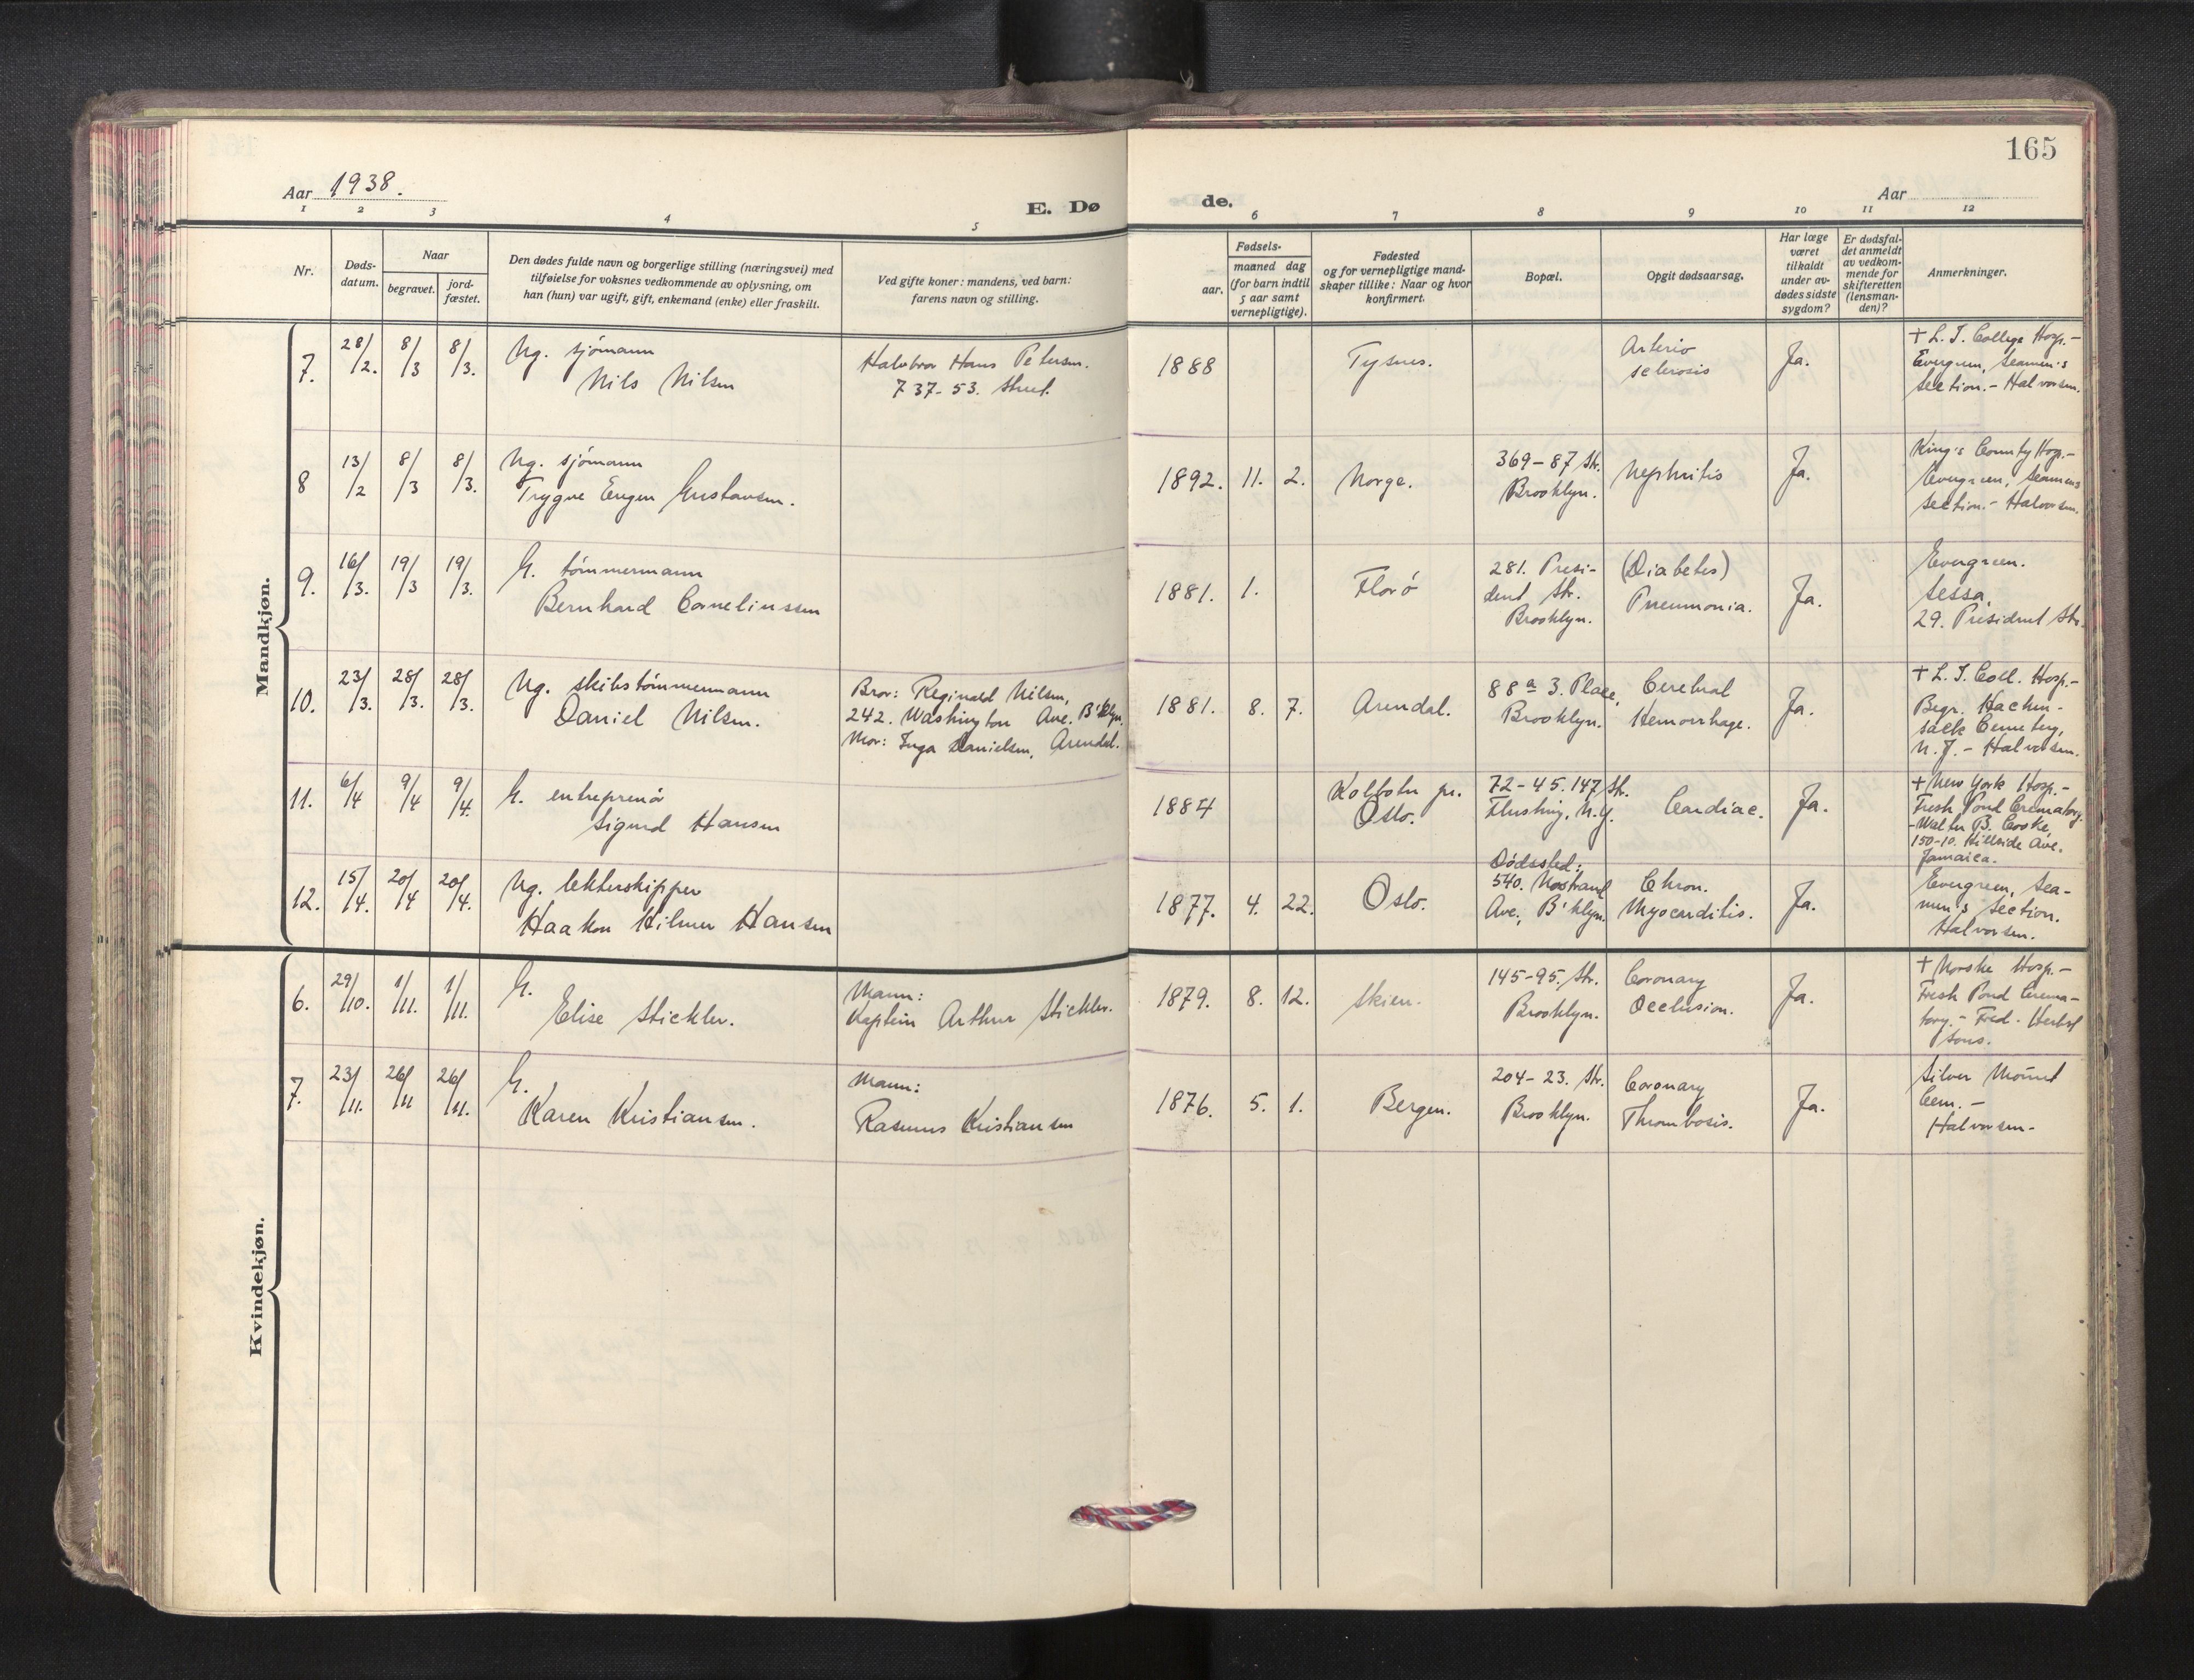 165
Aar 1938.
E. Døde.
Aar
1 2 3 4 5 6 7 8 9 10 11 12
Nr.
Døds-
datum.
Naar
begravet.
jord-
fæstet.
Den dødes fulde navn og borgerlige stilling (næringsvei) med
tilføielse for voksnes vedkommende av oplysning, om
han (hun) var ugift, gift, enkemand (enke) eller fraskilt.
Ved gifte koner: mandens, ved barn:
farens navn og stilling.
Fødsels-
aar.
maaned dag
(for barn indtil
5 aar samt
vernepligtige).
Fødested
og for vernepligtige mand-
skaper tillike: Naar og hvor
konfirmert.
Bopæl.
Opgit dødsaarsag.
Har læge
været
tilkaldt
under av-
dødes sidste
sygdom?
Er dødsfal-
det anmeldt
av vedkom-
mende for
skifteretten
(lensman-
den)?
Anmerkninger.
Mandkjøn.
7. 28/2. 8/3 8/3.
Ug. sjömann
Nils Nilsen
Halvbror Hans Petersen.
737-53. Street.
1888
Tysnes.
Arterio
sclerosis
Ja.
+ L. I. College Hosp.-
Evergreen, Seamen's
section.- Halvorsen.
8 13/2 8/3 8/3.
Ug. sjömann
Trygve Eugen Gustavsen.
1892. 11. 2.
Norge.
369-87 Str.
Brooklyn.
Nephritis
Ja.
King's County Hosp.-
Evergreen, Seamens
Section.- Halvorsen.
9. 16/3. 19/3 19/3.
G. tömmermann
Bernhard Corneliussen
1881. 1.
Florö
281. Presi-
dent Str.
Brooklyn.
(Diabetes)
Pneumonia.
Ja.
Evergreen.
Sessa,
29. President Str.
10. 23/3. 28/3. 28/3.
Ug. skibstömmermann
Daniel Nilsen.
Bror: Reginald Nilsen,
242. Washington Ave. B'klyn.
Mor: Inga Danielsen, Arendal.
1881. 8. 7.
Arendal.
88a 3. Place,
Brooklyn.
Cerebral
Hemorrhage.
Ja.
+ L. I. Coll. Hosp.-
Begr. Hacken-
sack Cemetery,
N. J. - Halvorsen.
11. 6/4 9/4 9/4.
G. entreprenör
Sigurd Hansen
1884
Kolbotn pr.
Oslo.
72-45. 147 Str.
Flushing, N.Y.
Cardiac.
Ja.
+ New York Hosp.-
Fresh Pond Crematory.
-Walter B. Cooke,
150-10. Hillside Ave.
Jamaica.
12. 15/4. 20/4 20/4.
Ug. lekterskipper
Haakon Hilmer Hansen
1877. 4. 22.
Oslo.
Dödssted:
540. Nostrand
Ave., B'klyn.
Chron.
Myocarditis.
Ja.
Evergreen, Sea-
men's Section.
Halvorsen.
Kvindekjøn.
6. 29/10. 1/11. 1/11.
G.
Elise Stickler.
Mann:
Kaptein Arthur Stickler.
1879. 8. 12.
Skien.
145-95. Str.
Brooklyn.
Coronary
Occlusion.
Ja.
+ Norske Hosp.-
Fresh Pond Crema-
tory.- Fred. Herbst
Sons.
7. 23/11. 26/11 26/11.
G.
Karen Kristiansen.
Mann:
Rasmus Kristiansen
1876. 5. 1.
Bergen.
204-23. Str.
Brooklyn.
Coronary
Thrombosis.
Ja.
Silver Mount
Cem. -
Halvorsen-